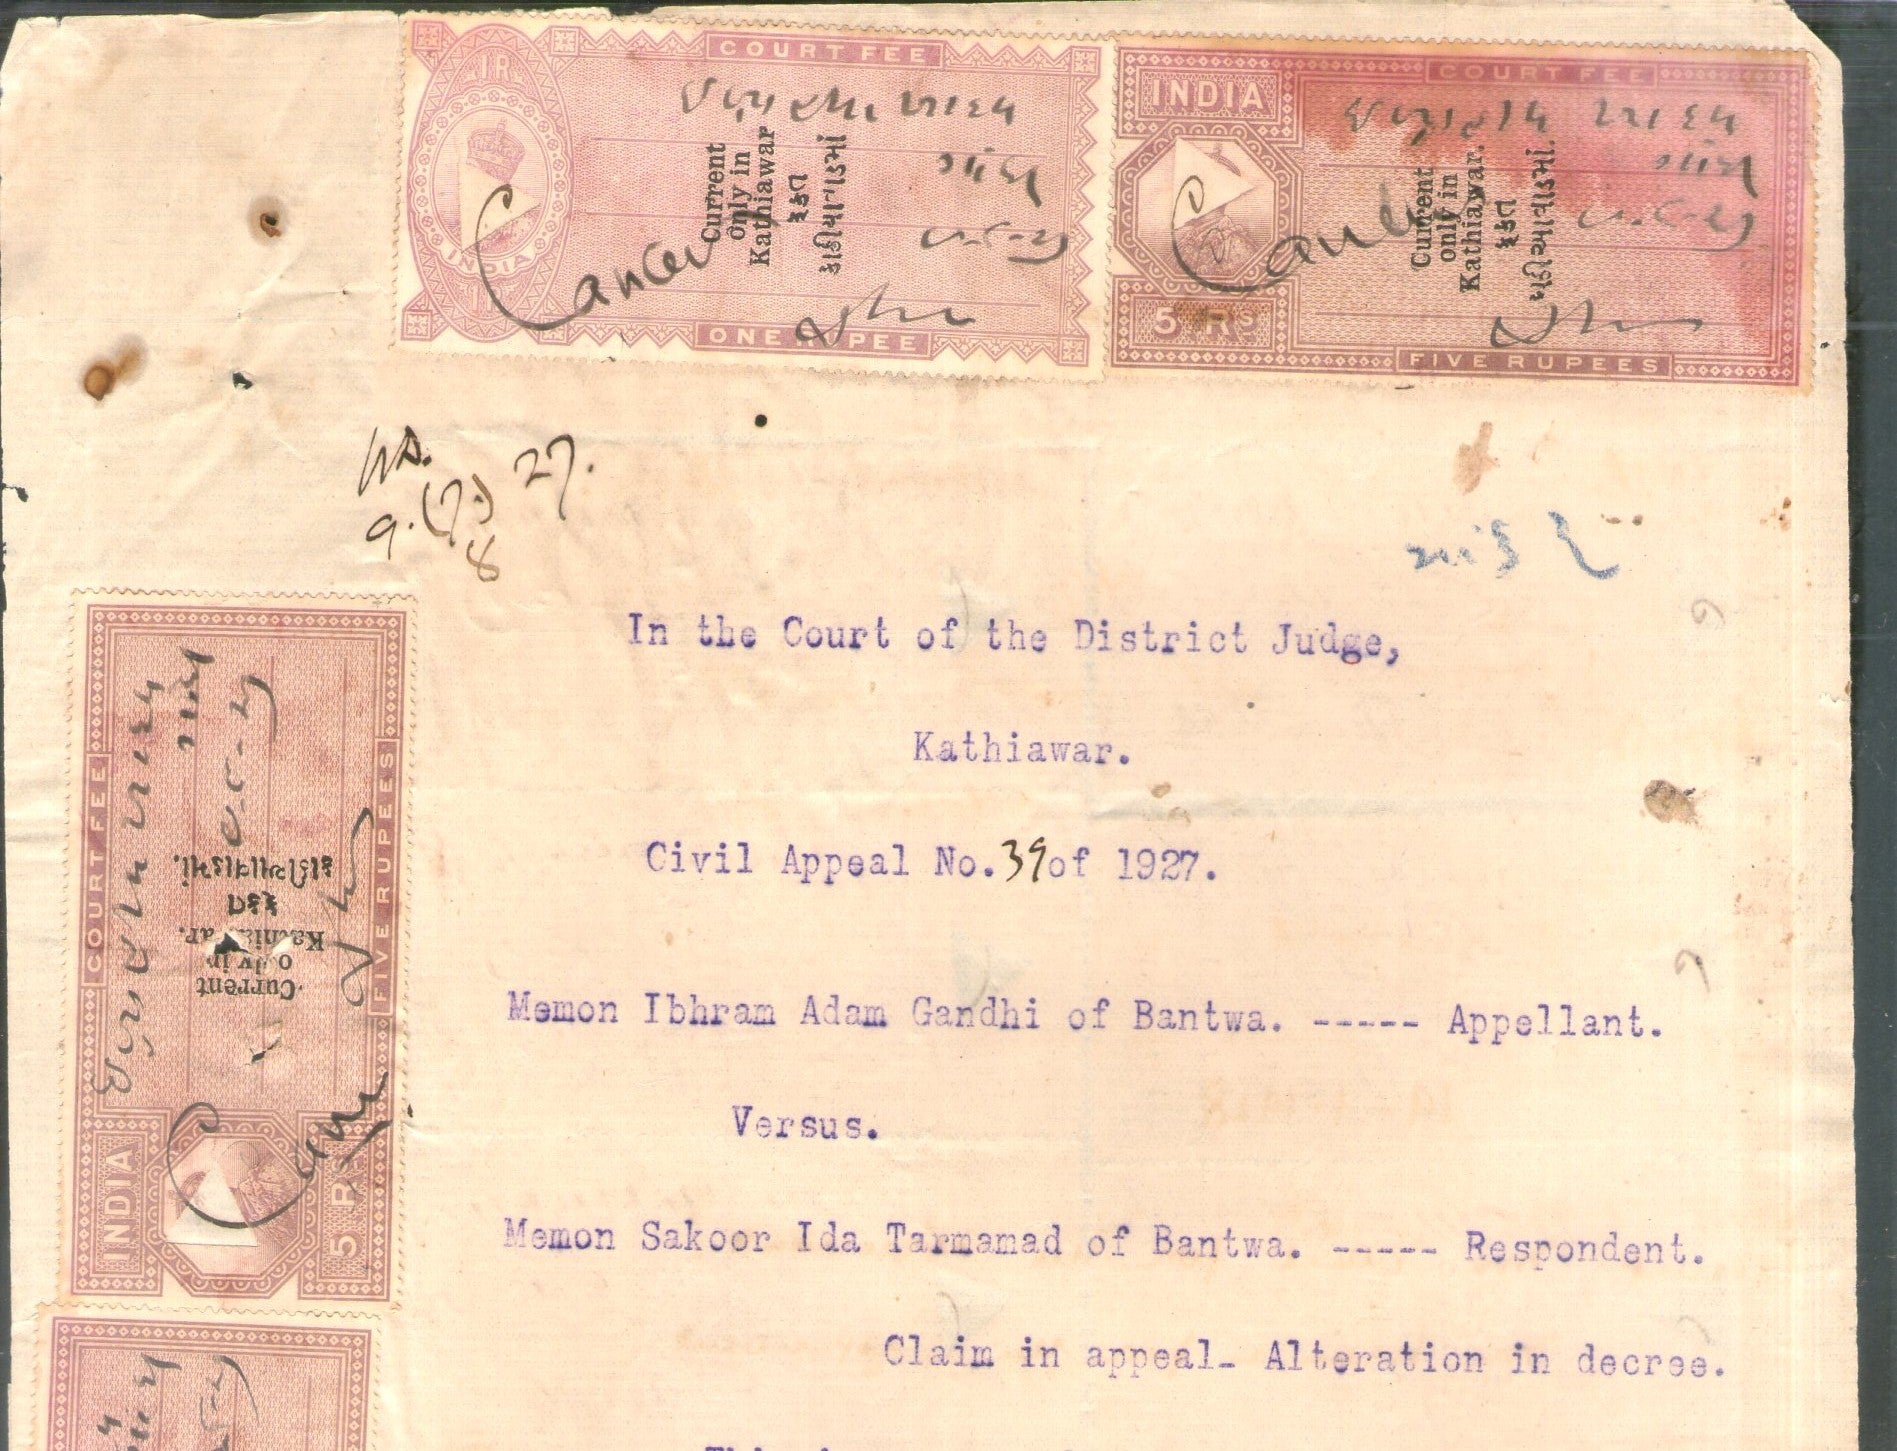 COURT FEE
1 R
INDIA
Current
only in
Kathiawar
ફક્ત
કાઠીયાવાડમાં
Cancel
ONE RUPEE
COURT FEE
INDIA
Current
only in
Kathiawar.
ફક્ત
કાઠીયાવાડમાં.
Cancel
5 RS
FIVE RUPEES
27.
8
In the Court of the District Judge,
Kathiawar.
Civil Appeal No.39of 1927.
Memon Ibhram Adam Gandhi of Bantwa. ----- Appellant.
Versus.
Memon Sakoor Ida Tarmamad of Bantwa. ----- Respondent.
Claim in appeal- Alteration in decree.
COURT FEE
Current
only in
Kathiawar.
ફક્ત
કાઠીયાવાડમાં.
FIVE RUPEES
INDIA
5 RS